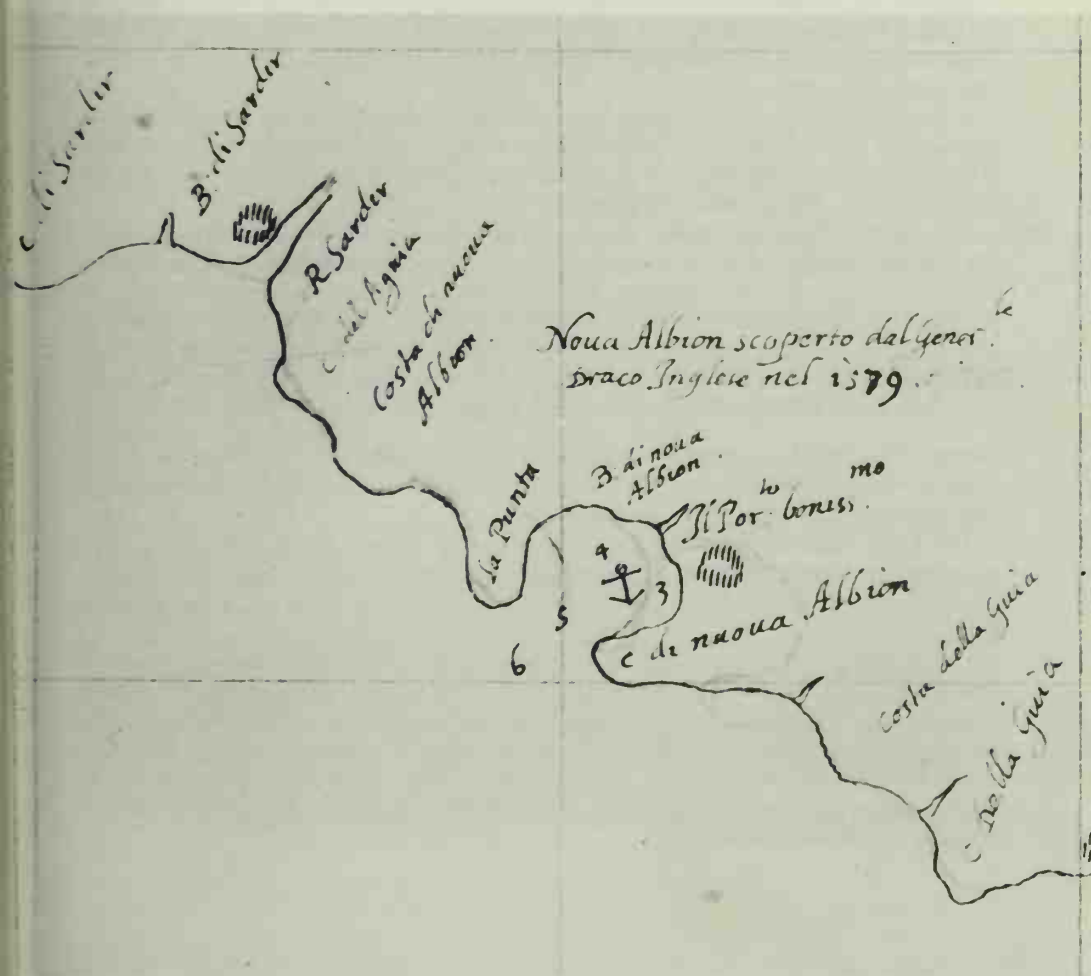 C. di Sarder
B. di Sarder
R. Sarder
C. del Aguia
Costa di nuoua
Albion
Noua Albion scoperto dal Gener.le
Draco Inglese nel 1579.
B. di noua
Albion.
la Punta
Il Por.to boniss.mo
4
3
5
6
C di nuoua Albion
Costa della Guia
C della Guia